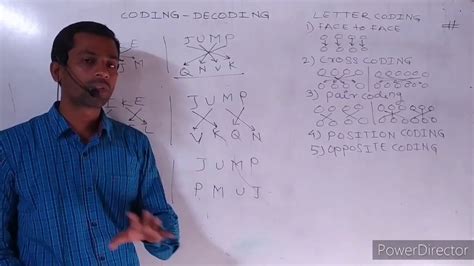 CODING-DECODING
JUMP
QNVK
JUMP
VKQN
JUMP
PMUJ
LETTER CODING
1) FACE TO FACE
2) CROSS CODING
3) Pair coding
4) POSITION CODING
5) OPPOSITE CODING
#
KE
JM
KE
L
PowerDirector